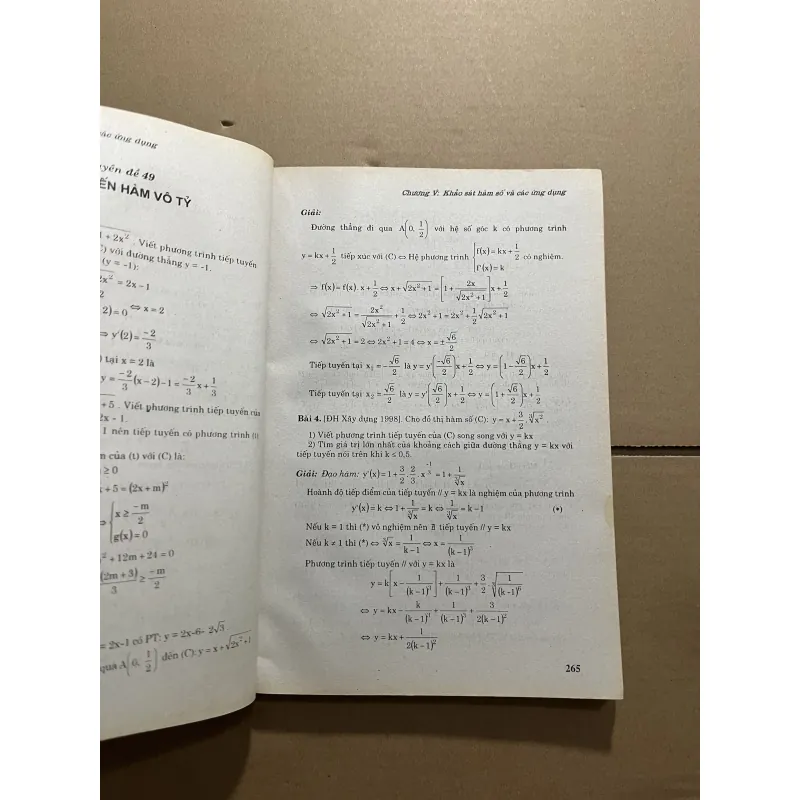 các ứng dụng
yên đề 49
ẾN HÀM VÔ TỶ
1 + 2x² . Viết phương trình tiếp tuyến
) với đường thẳng y = -1.
(y = -1):
2x² = 2x - 1
2) = 0 ⇔ x = 2
⇒ y'(2) = -2/3
) tại x = 2 là
y = -2/3 (x - 2) - 1 = -2/3 x + 1/3
+ 5 . Viết phương trình tiếp tuyến của
2x - 1.
1 nên tiếp tuyến có phương trình (t)
n của (t) với (C) là:
≥ 0
x + 5 = (2x + m)²
{ x ≥ -m/2
g(x) = 0
² + 12m + 24 = 0
(2m + 3)/3 ≥ -m/2
= 2x-1 có PT: y = 2x-6- 2√3
quá A(0, 1/2) đến (C): y = x + √(2x² + 1)
Chương V: Khảo sát hàm số và các ứng dụng
Giải:
Đường thẳng đi qua A(0, 1/2) với hệ số góc k có phương trình
y = kx + 1/2 tiếp xúc với (C) ⇔ Hệ phương trình { f(x) = kx + 1/2 ; f'(x) = k có nghiệm.
⇒ f(x) = f'(x). x + 1/2 ⇔ x + √(2x² + 1) = [1 + 2x/√(2x² + 1)] x + 1/2
⇔ √(2x² + 1) = 2x²/√(2x² + 1) + 1/2 ⇔ 2x² + 1 = 2x² + 1/2 √(2x² + 1)
⇔ √(2x² + 1) = 2 ⇔ 2x² + 1 = 4 ⇔ x = ± √6/2
Tiếp tuyến tại x₁ = -√6/2 là y = y'(-√6/2) x + 1/2 ⇔ y = (1 - √6/2) x + 1/2
Tiếp tuyến tại x₂ = √6/2 là y = y'(√6/2) x + 1/2 ⇔ y = (1 + √6/2) x + 1/2
Bài 4. [ĐH Xây dựng 1998]. Cho đồ thị hàm số (C): y = x + 3/2 . ∛x²
1) Viết phương trình tiếp tuyến của (C) song song với y = kx
2) Tìm giá trị lớn nhất của khoảng cách giữa đường thẳng y = kx với
tiếp tuyến nói trên khi k ≤ 0,5.
Giải: Đạo hàm: y'(x) = 1 + 3/2 . 2/3 . x^(-1/3) = 1 + 1/∛x
Hoành độ tiếp điểm của tiếp tuyến // y = kx là nghiệm của phương trình
y'(x) = k ⇔ 1 + 1/∛x = k ⇔ 1/∛x = k - 1 (*)
Nếu k = 1 thì (*) vô nghiệm nên ∄ tiếp tuyến // y = kx
Nếu k ≠ 1 thì (*) ⇔ ∛x = 1/(k - 1) ⇔ x = 1/(k - 1)³
Phương trình tiếp tuyến // với y = kx là
y = k[x - 1/(k - 1)³] + 1/(k - 1)³ + 3/2 . ∛(1/(k - 1)⁶)
⇔ y = kx - k/(k - 1)³ + 1/(k - 1)³ + 3/2(k - 1)²
⇔ y = kx + 1/2(k - 1)²
265